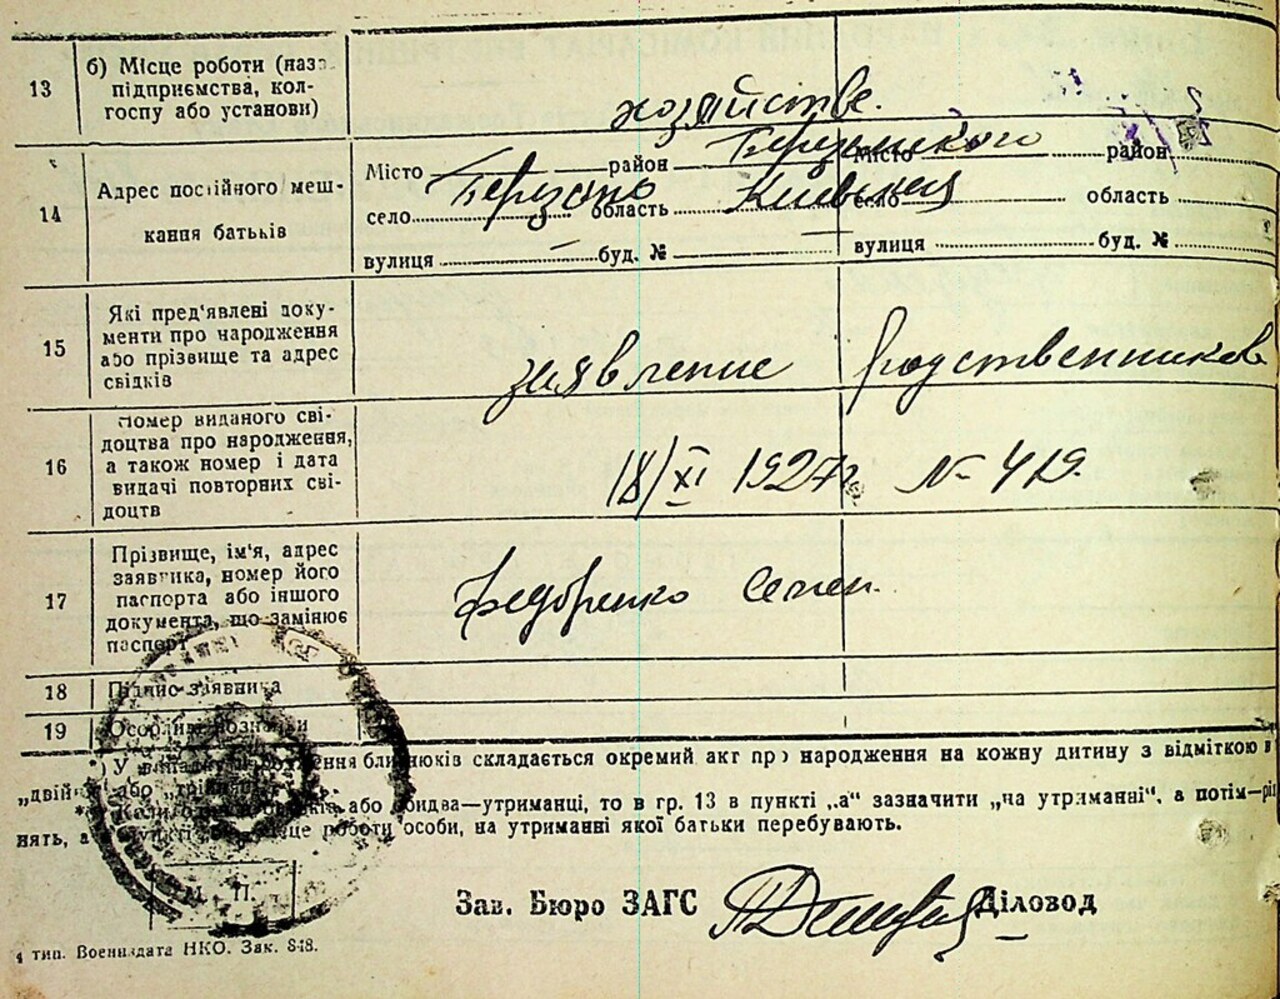 13 б) Місце роботи (назв. підприємства, колгоспу або установи) хозяйстве.
14 Адрес постійного мешкання батьків
Місто — район Березанского
село Березань область Киевская
вулиця — буд. № —
Місто район
село область
вулиця буд. №
15 Які пред'явлені документи про народження або прізвище та адрес свідків
заявление родственников
16 Номер виданого свідоцтва про народження, а також номер і дата видачі повторних свідоцтв
18/XI 1927г. № 419.
17 Прізвище, ім'я, адрес заявника, номер його паспорта або іншого документа, що замінює паспорт
Федоренко Семен.
18 Підпис заявника
19 Особливі позначки
*) У випадку народження близнюків складається окремий акт про народження на кожну дитину з відміткою
„двійня" або „трійня"
або обидва—утриманці, то в гр. 13 в пункті „а" зазначити „на утриманні", а потім—
нять, роботи особи, на утриманні якої батьки перебувають.
М. П.
Зав. Бюро ЗАГС Діловод
4 тип. Воениздата НКО. Зак. 848.